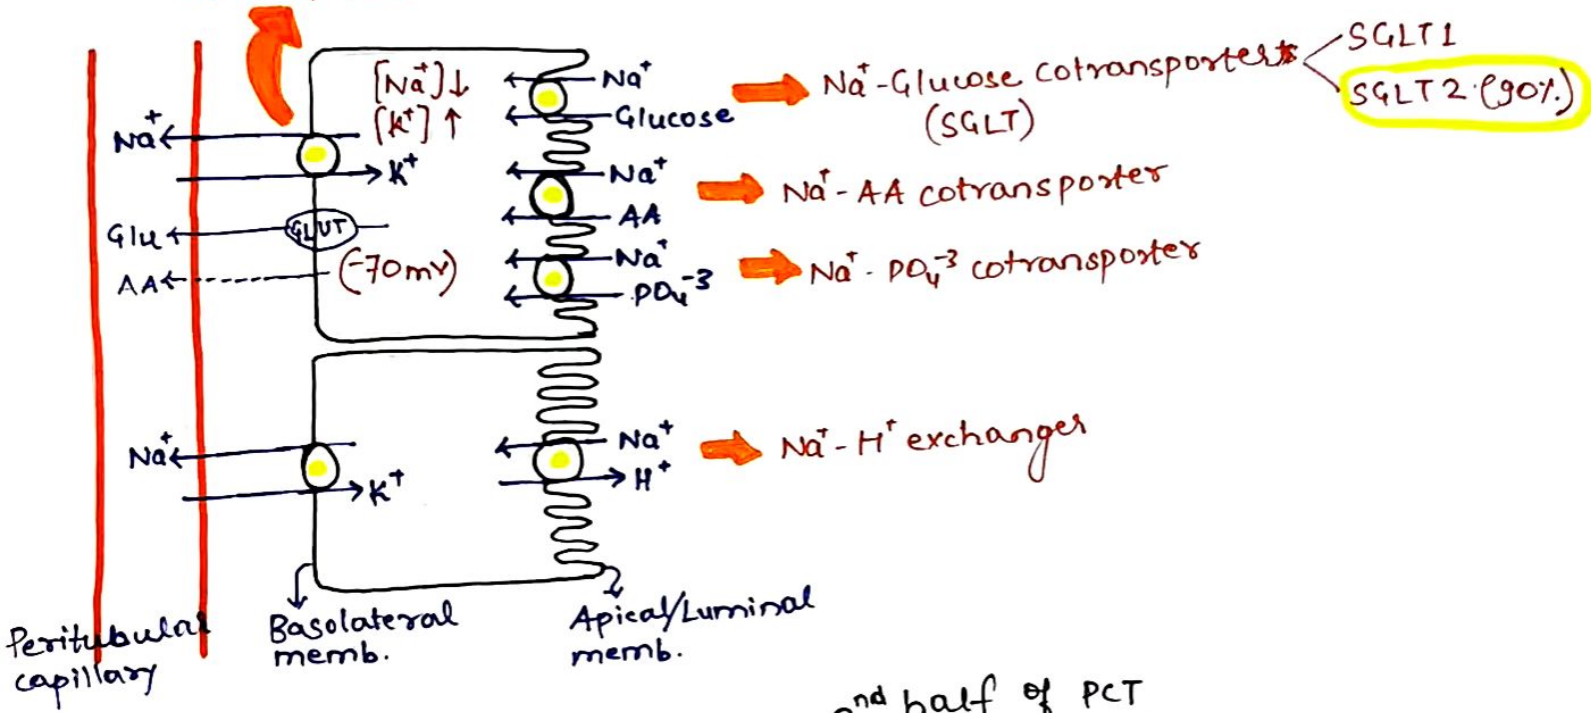 [Na⁺]↓
[K⁺]↑
Na⁺
K⁺
Glu
GLUT
AA
(-70mv)
Na⁺
Glucose
Na⁺
AA
Na⁺
PO₄⁻³
Na⁺-Glucose cotransporters
(SGLT)
SGLT1
SGLT2 (90%)
Na⁺-AA cotransporter
Na⁺-PO₄⁻³ cotransporter
Na⁺
K⁺
Na⁺
H⁺
Na⁺-H⁺ exchanger
Peritubular
capillary
Basolateral
memb.
Apical/Luminal
memb.
nd half of PCT